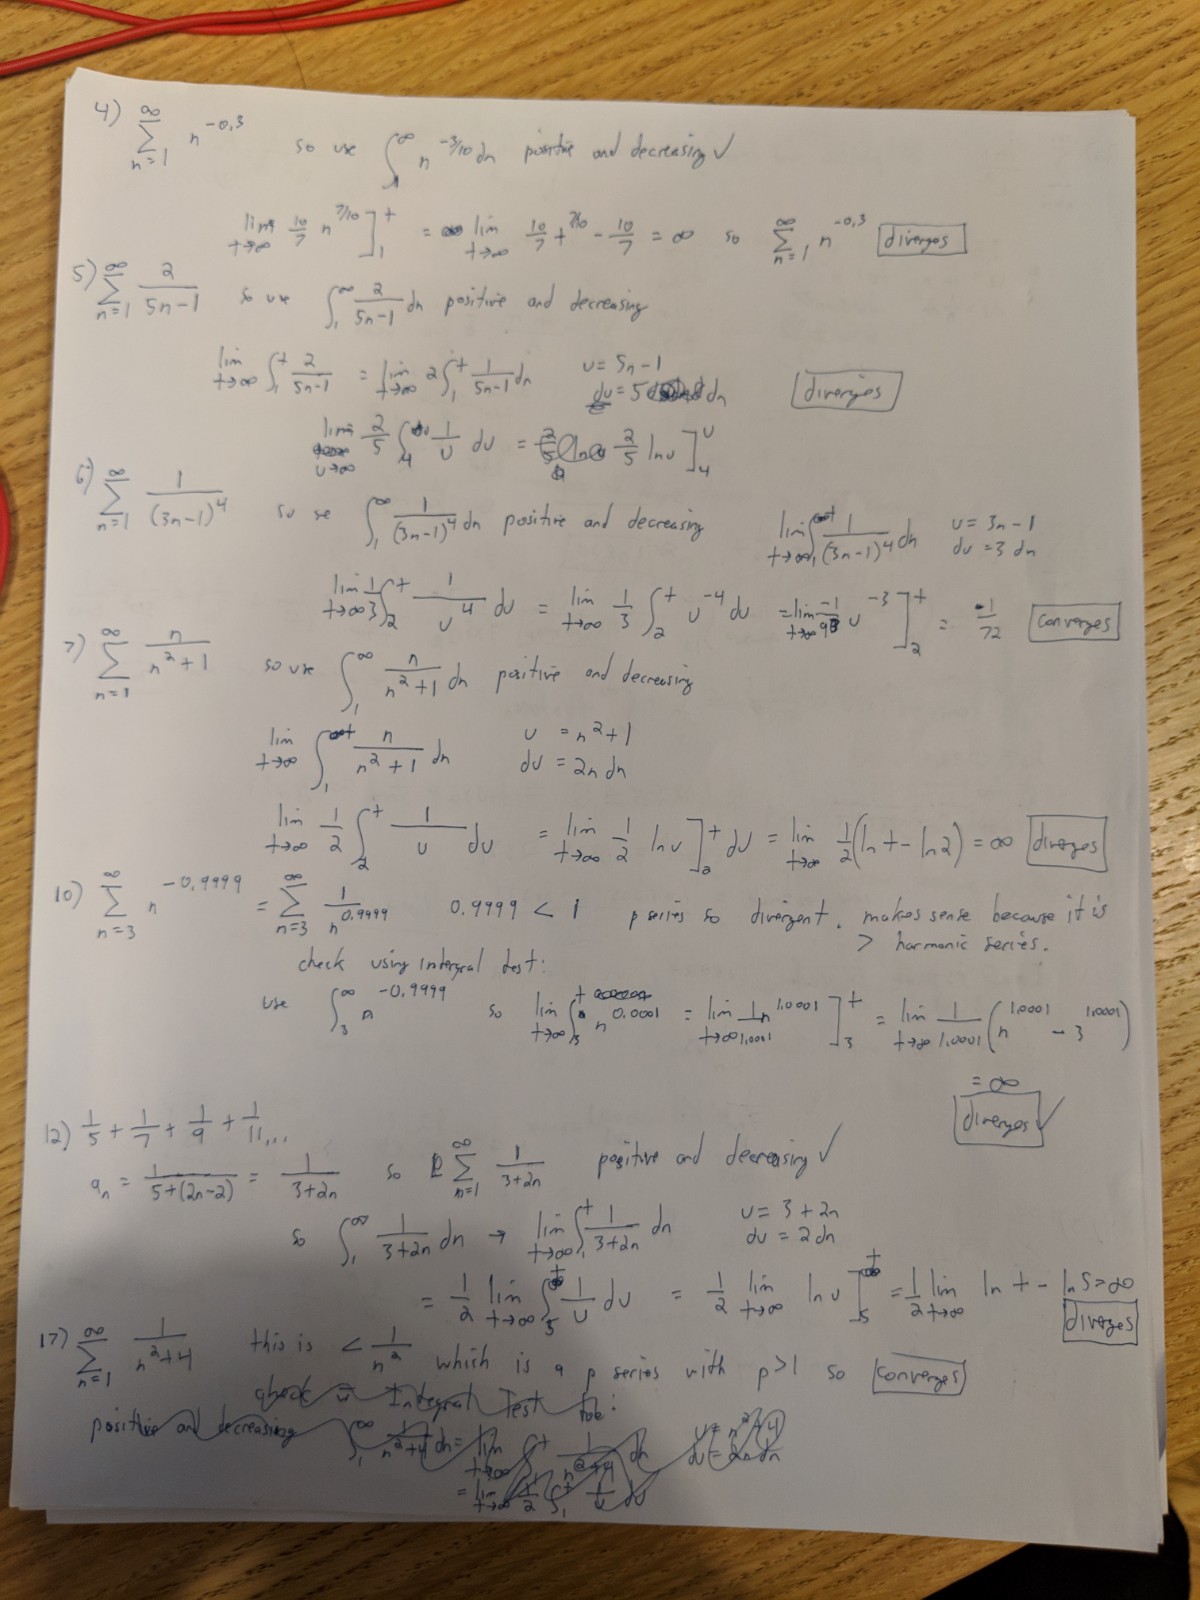 4) ∞∑n=1 n^-0.3 so use ∫1^∞ n^-3/10 dn positive and decreasing ✓
lim t→∞ 10/7 n^7/10 ]1^t = lim t→∞ 10/7 t^7/10 - 10/7 = ∞ so ∞∑n=1 n^-0.3 diverges
5) ∞∑n=1 2/(5n-1) so use ∫1^∞ 2/(5n-1) dn positive and decreasing
lim t→∞ ∫1^t 2/(5n-1) = lim t→∞ 2∫1^t 1/(5n-1) dn u = 5n-1
du = 5 dn diverges
lim u→∞ 2/5 ∫4^u 1/u du = 2/5 ln u ]4^u
6) ∞∑n=1 1/(3n-1)^4 so se ∫1^∞ 1/(3n-1)^4 dn positive and decreasing lim t→∞ ∫1^t 1/(3n-1)^4 dn u = 3n-1
du = 3 dn
lim t→∞ 1/3 ∫2^t 1/u^4 du = lim t→∞ 1/3 ∫2^t u^-4 du = lim t→∞ -1/9 u^-3 ]2^t = 1/72 converges
7) ∞∑n=1 n/(n^2+1) so use ∫1^∞ n/(n^2+1) dn positive and decreasing
lim t→∞ ∫1^t n/(n^2+1) dn u = n^2+1
du = 2n dn
lim t→∞ 1/2 ∫2^t 1/u du = lim t→∞ 1/2 ln u ]2^t du = lim t→∞ 1/2(ln t - ln 2) = ∞ diverges
10) ∞∑n=3 n^-0.9999 = ∞∑n=3 1/n^0.9999 0.9999 < 1 p series so divergent. makes sense because it is
> harmonic series.
check using integral test:
use ∫3^∞ n^-0.9999 so lim t→∞ ∫3^t n^0.0001 = lim t→∞ 1/1.0001 n^1.0001 ]3^t = lim t→∞ 1/1.0001 (n^1.0001 - 3^1.0001)
= ∞
diverges ✓
12) 1/5 + 1/7 + 1/9 + 1/11...
an = 1/(5+(2n-2)) = 1/(3+2n) so ∞∑n=1 1/(3+2n) positive and decreasing ✓
so ∫1^∞ 1/(3+2n) dn → lim t→∞ ∫1^t 1/(3+2n) dn u = 3+2n
du = 2 dn
= 1/2 lim t→∞ ∫5^t 1/u du = 1/2 lim t→∞ ln u ]5^t = 1/2 lim t→∞ ln t - ln 5 = ∞
diverges
17) ∞∑n=1 1/(n^2+4) this is < 1/n^2 which is a p series with p>1 so converges
check w Integral Test too:
positive and decreasing ∫1^∞ 1/(n^2+4) dn = lim t→∞ ∫1^t 1/(n^2+4) dn u = n^2+4
du = 2n dn
= lim t→∞ 1/2 ∫1^t 1/u du